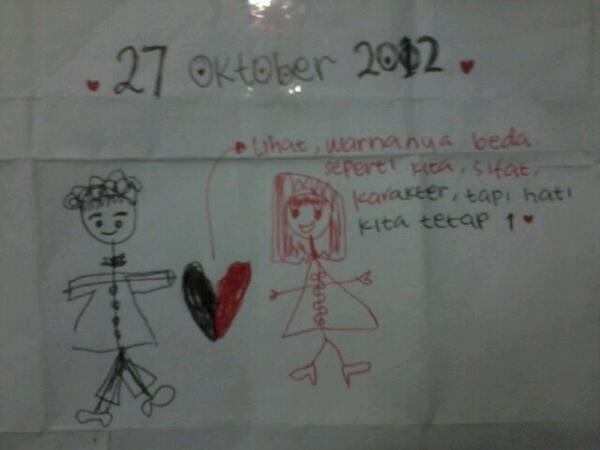 27 Oktober 2012
Lihat, warnanya beda.
seperti kita, sifat,
karakter, tapi hati
kita tetap 1